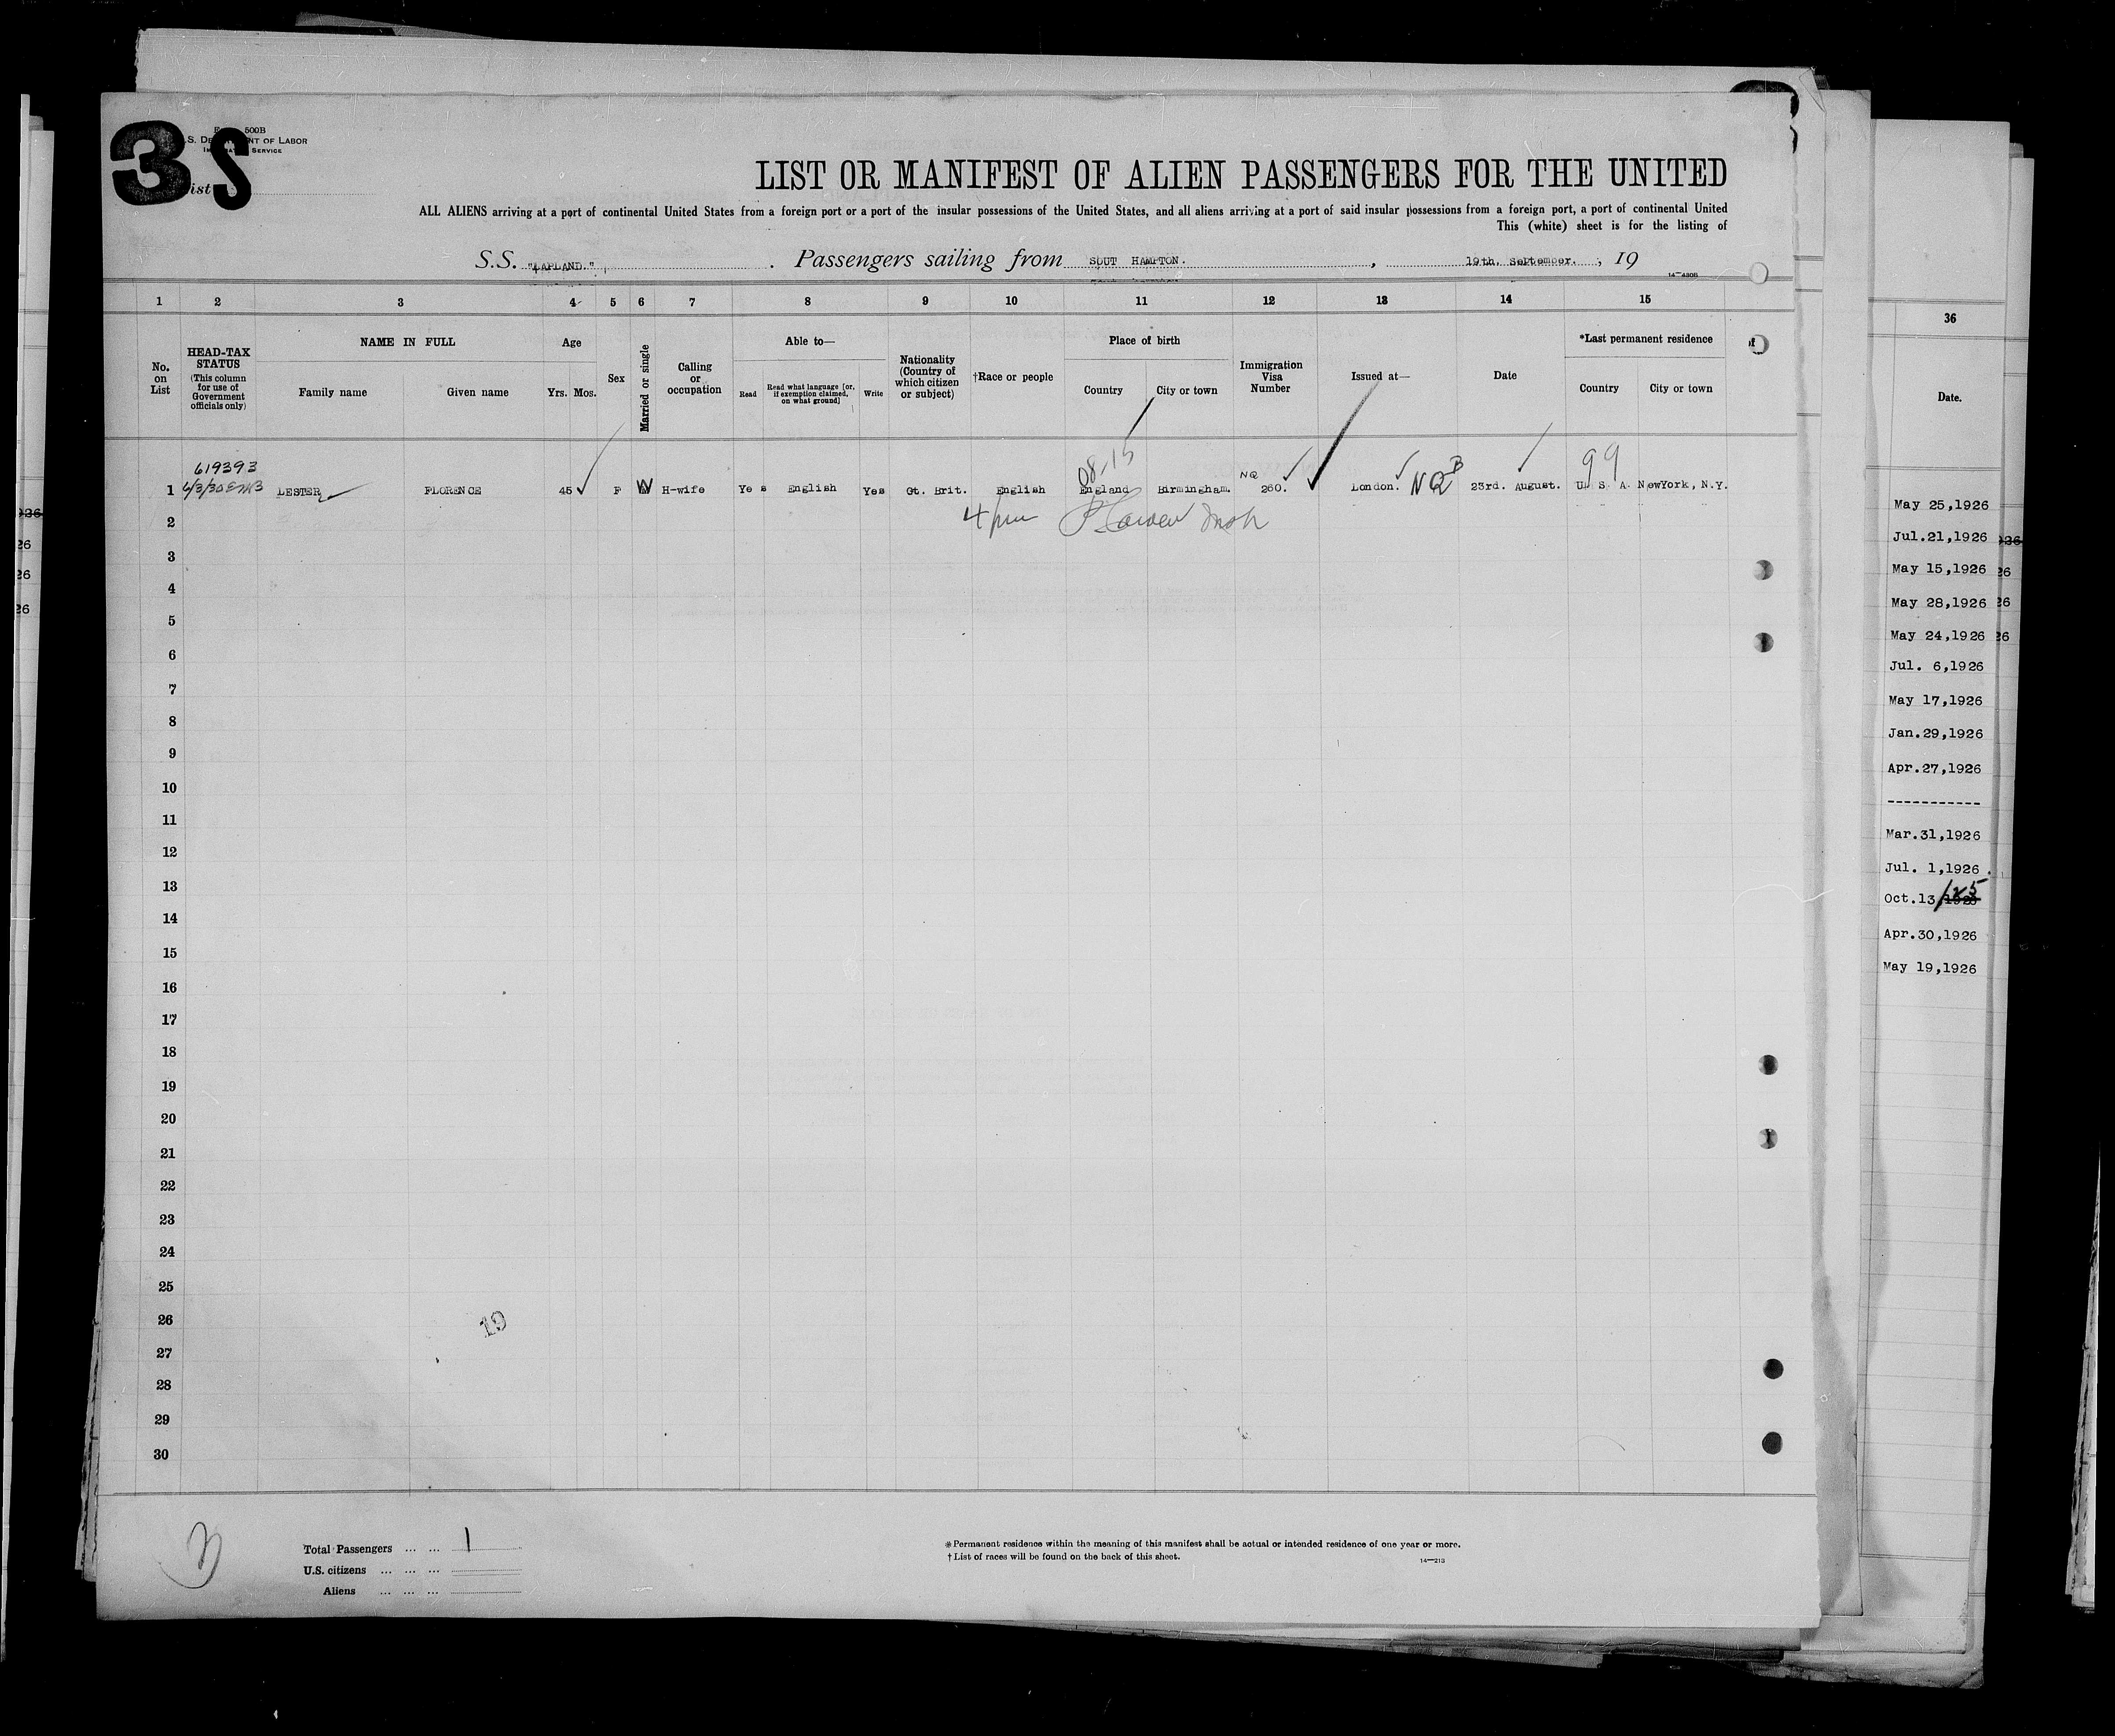 3 S
500B
NT OF LABOR
SERVICE
LIST OR MANIFEST OF ALIEN PASSENGERS FOR THE UNITED
ALL ALIENS arriving at a port of continental United States from a foreign port or a port of the insular possessions of the United States, and all aliens arriving at a port of said insular possessions from a foreign port, a port of continental United
This (white) sheet is for the listing of
S.S. "LAPLAND." . Passengers sailing from SOUT HAMPTON. , 19th. September. , 19
14—430B
1 2 3 4 5 6 7 8 9 10 11 12 13 14 15
No. on List
HEAD-TAX STATUS (This column for use of Government officials only)
NAME IN FULL
Family name Given name
Age
Yrs. Mos.
Sex
Married or single
Calling or occupation
Able to—
Read Read what language [or, if exemption claimed, on what ground] Write
Nationality (Country of which citizen or subject)
†Race or people
Place of birth
Country City or town
Immigration Visa Number
Issued at—
Date
*Last permanent residence
Country City or town
619393 08-15 NQ 99
1 6/3/30 LESTER FLORENCE 45 F W H-wife Ye s English Yes Gt. Brit. English England Birmingham. 260. London. NQB 23rd. August. U. S. A. NewYork, N.Y.
2
3
4
5
6
7
8
9
10
11
12
13
14
15
16
17
18
19
20
21
22
23
24
25
26
27
28
29
30
19
Total Passengers ... ... 1
U.S. citizens ... ... ...
Aliens ... ... ...
※Permanent residence within the meaning of this manifest shall be actual or intended residence of one year or more.
†List of races will be found on the back of this sheet.
14—213
36
Date.
May 25,1926
Jul.21,1926
May 15,1926
May 28,1926
May 24,1926
Jul. 6,1926
May 17,1926
Jan.29,1926
Apr.27,1926
-----------
Mar.31,1926
Jul. 1,1926
Oct.13
Apr.30,1926
May 19,1926